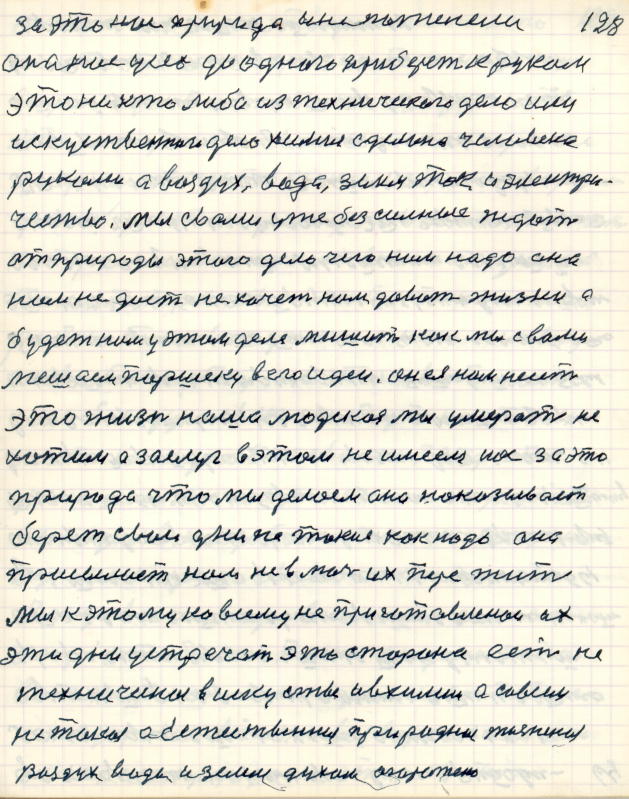 за это нас природа и не поженели 128
она нас усех до одного приберет к рукам
это ни хто либа из технического дело или
искуственного дела химия сделана человека
руками а воздух, вода, земля так и электри-
чество. мы с вами уже без сильные ждать
от природы этого дело чего нам надо она
нам не даст не хочет нам давать жизни а
будет нам у этом деле мешать как мы с вами
мешаем паршеку в его идеи. он ея нам несет
это жизнь наша людская мы умерать не
хотим а заслуг в этом не имеем нас за это
природа что мы делаем она наказывает
берет свои дни не такие как надо она
присылает нам не в мач их пережить
мы к этому ко всему не приготовленаи их
эти дни устречать эта сторона есть не
технична в искуства и в химии а совсем
не такая а естественная природная жизненая
воздух вода и земля духом огорожено